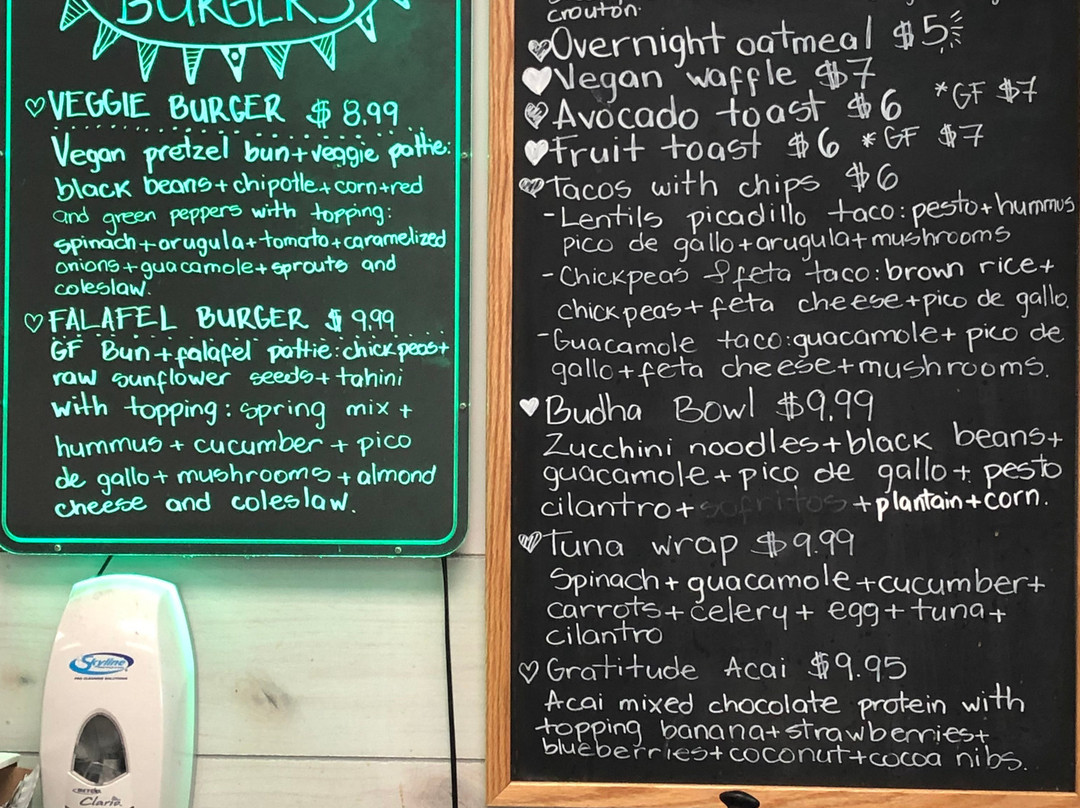 BURGERS
♡VEGGIE BURGER $8.99
Vegan pretzel bun+veggie pattie:
black beans+chipotle+corn+red
and green peppers with topping:
spinach+arugula+tomato+caramelized
onions+guacamole+sprouts and
coleslaw.
♡FALAFEL BURGER $9.99
GF Bun+falafel pattie:chickpeas+
raw sunflower seeds+tahini
with topping: spring mix +
hummus + cucumber + pico
de gallo+mushrooms+almond
cheese and coleslaw.
Skyline
Claris
crouton.
♥Overnight oatmeal $5
♥Vegan waffle $7
♥Avocado toast $6 *GF $7
♥Fruit toast $6 *GF $7
♥Tacos with chips $6
-Lentils picadillo taco:pesto+hummus
pico de gallo+arugula+mushrooms
-Chickpeas & feta taco:brown rice+
chickpeas+feta cheese+pico de gallo.
-Guacamole taco:guacamole+pico de
gallo+feta cheese+mushrooms.
♥Budha Bowl $9,99
Zucchini noodles+black beans+
guacamole+pico de gallo+pesto
cilantro+sofritos+plantain+corn.
♥Tuna wrap $9.99
Spinach+guacamole+cucumber+
carrots+celery+egg+tuna+
cilantro
♡Gratitude Acai $9.95
Acai mixed chocolate protein with
topping banana+strawberries+
blueberries+coconut+cocoa nibs.